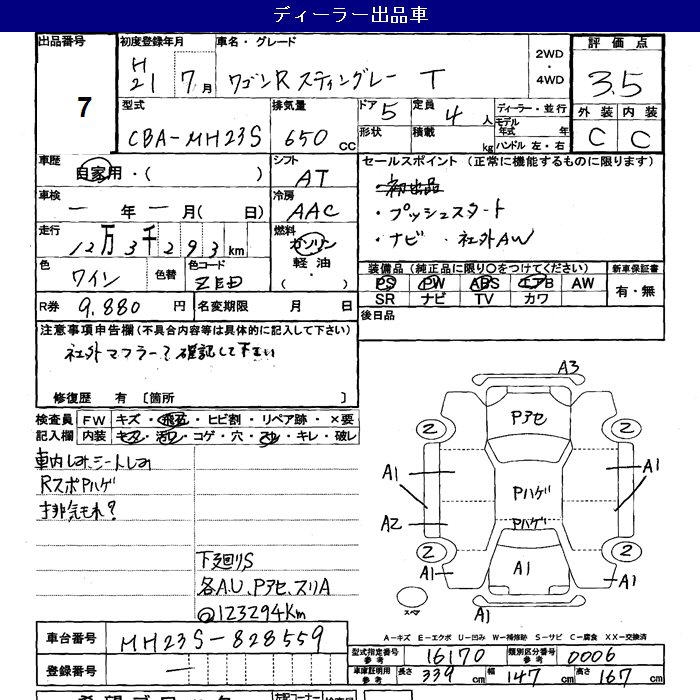 ディーラー出品車
出品番号 初度登録年月 車名・グレード 2WD・4WD 評価点
7 H21 7月 ワゴンR スティングレー T 3.5
型式 排気量 ドア 5 定員 4人 ディーラー・並行 外装 内装
CBA-MH23S 650cc 形状 積載 kg モデル年式 年 ハンドル 左・右 C C
車歴 自家用・( ) シフト AT セールスポイント (正常に機能するものに限ります)
車検 一年一月( 日) 冷房 AAC ・初出品
・プッシュスタート
走行 12万3千293km 燃料 ガソリン・軽油・( ) ・ナビ・社外AW
色 ワイン 色替 色コード ZED 装備品 (純正品に限り○をつけてください) 新車保証書
PS PW ABS エアB AW 有・無
SR ナビ TV カワ
R券 9,880円 名変期限 月 日 後日品
注意事項申告欄(不具合内容等は具体的に記入して下さい)
社外マフラー?確認して下さい
修復歴 有 〔箇所 〕
検査員 FW キズ・飛石・ヒビ割・リペア跡・×要
記入欄 内装 キズ・汚れ・コゲ・穴・スレ・キレ・破レ
車内しみ、シートしみ
RスポPハゲ
排気もれ?
下廻りS
各A.U、Pアセ、スリA
123294Km
A3
Pアセ
2 2
A1 A1
Pハゲ
Pハゲ
A2
2 2
A1 A1 A1
スペア A1
A-キズ E-エクボ U-凹み W-補修跡 S-サビ C-腐食 XX-交換済
車台番号 MH23S-828559 型式指定番号 参考 16170 類別区分番号 参考 0006
登録番号 一 車庫証明用 参考 長さ 339cm 幅 147cm 高さ 167cm